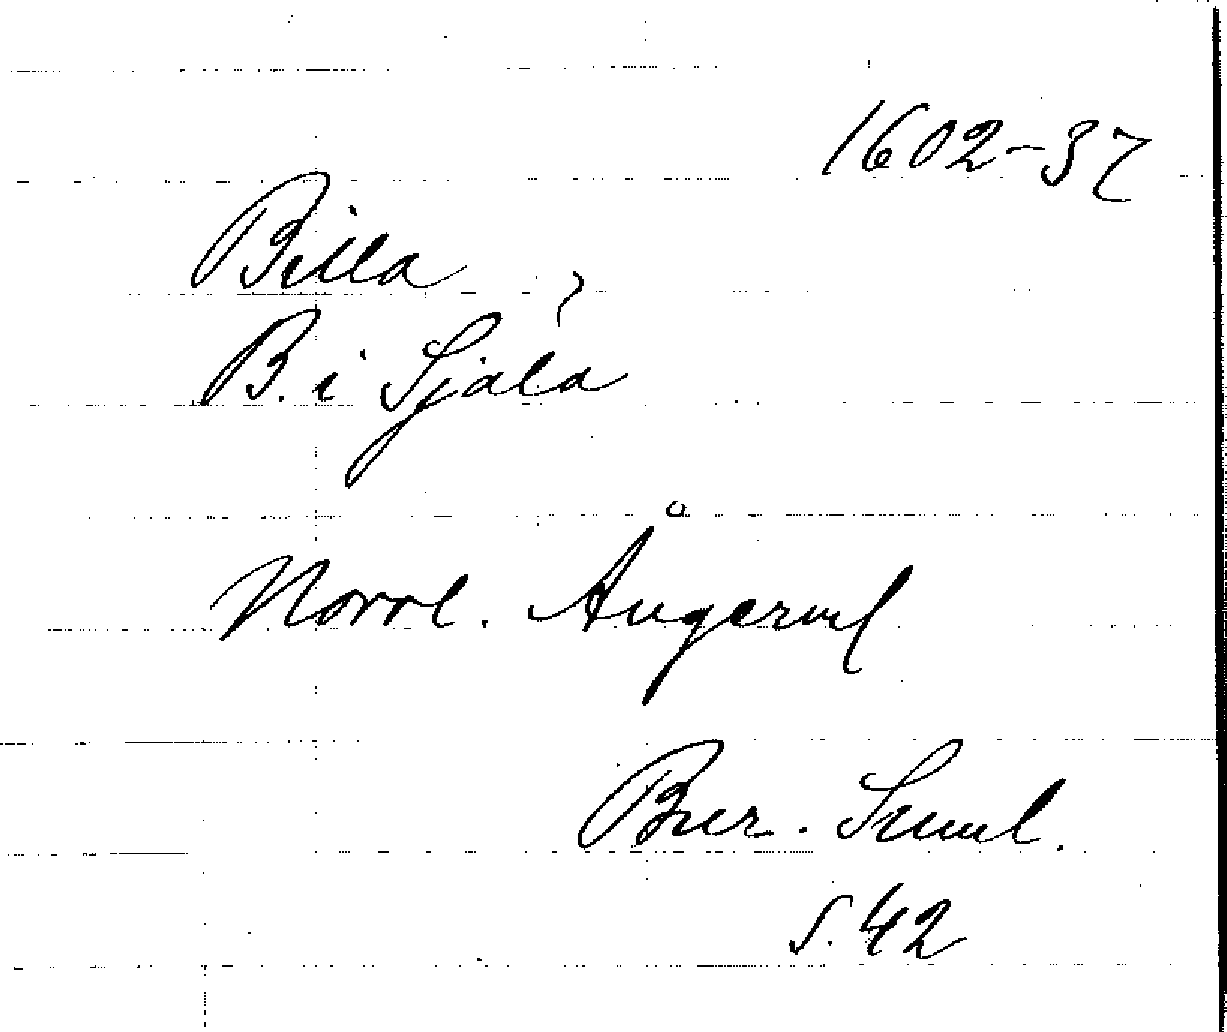 1602-37
Billa
?
B. i Sjala
Norrl. Ångerml
Bur. Suml.
s. 42